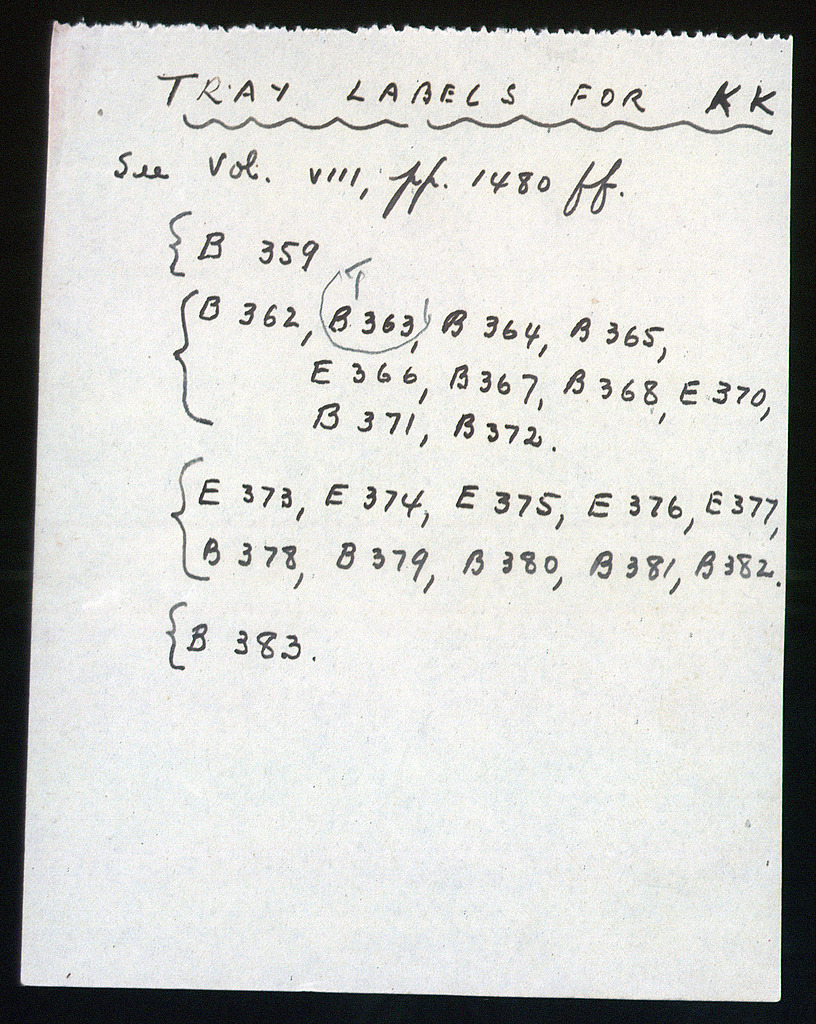 TRAY LABELS FOR KK
See Vol. VIII, pp. 1480 ff.
{ B 359
T
{ B 362, B 363, B 364, B 365,
E 366, B 367, B 368, E 370,
B 371, B 372.
{ E 373, E 374, E 375, E 376, E 377,
B 378, B 379, B 380, B 381, B 382.
{ B 383.